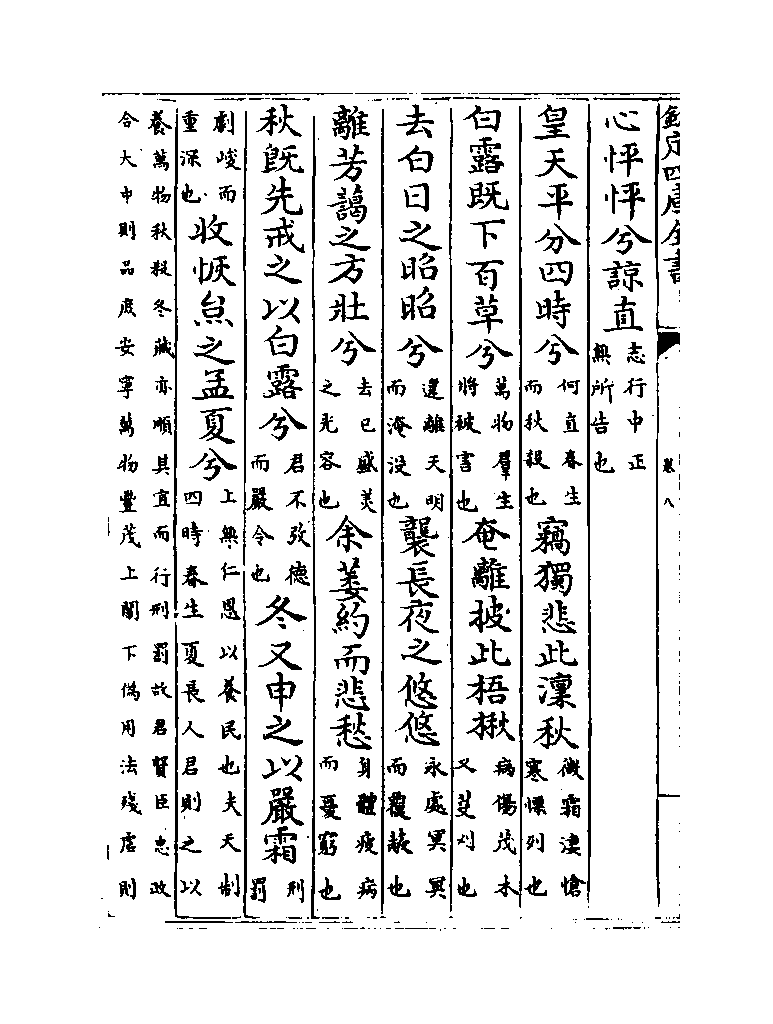 欽定四庫全書 卷八
心怦怦兮諒直志行中正無所告也
皇天平分四時兮何直春生而秋殺也竊獨悲此凜秋微霜淒愴寒慄列也
白露既下百草兮萬物羣生將被害也奄離披此梧楸病傷茂木又芟刈也
去白日之昭昭兮違離天明而淹没也襲長夜之悠悠永處冥冥而覆蔽也
離芳藹之方壯兮去已盛美之光容也余萎約而悲愁身體疲病而憂窮也
秋既先戒之以白露兮君不弘德而嚴令也冬又申之以嚴霜刑罰
劇峻而重深也收恢炱之孟夏兮上無仁恩以養民也夫天制四時春生夏長人君則之以
養萬物秋殺冬藏亦順其宜而行刑罰故君賢臣忠政合大中則品庶安寧萬物豐茂上闇下偽用法殘虐則